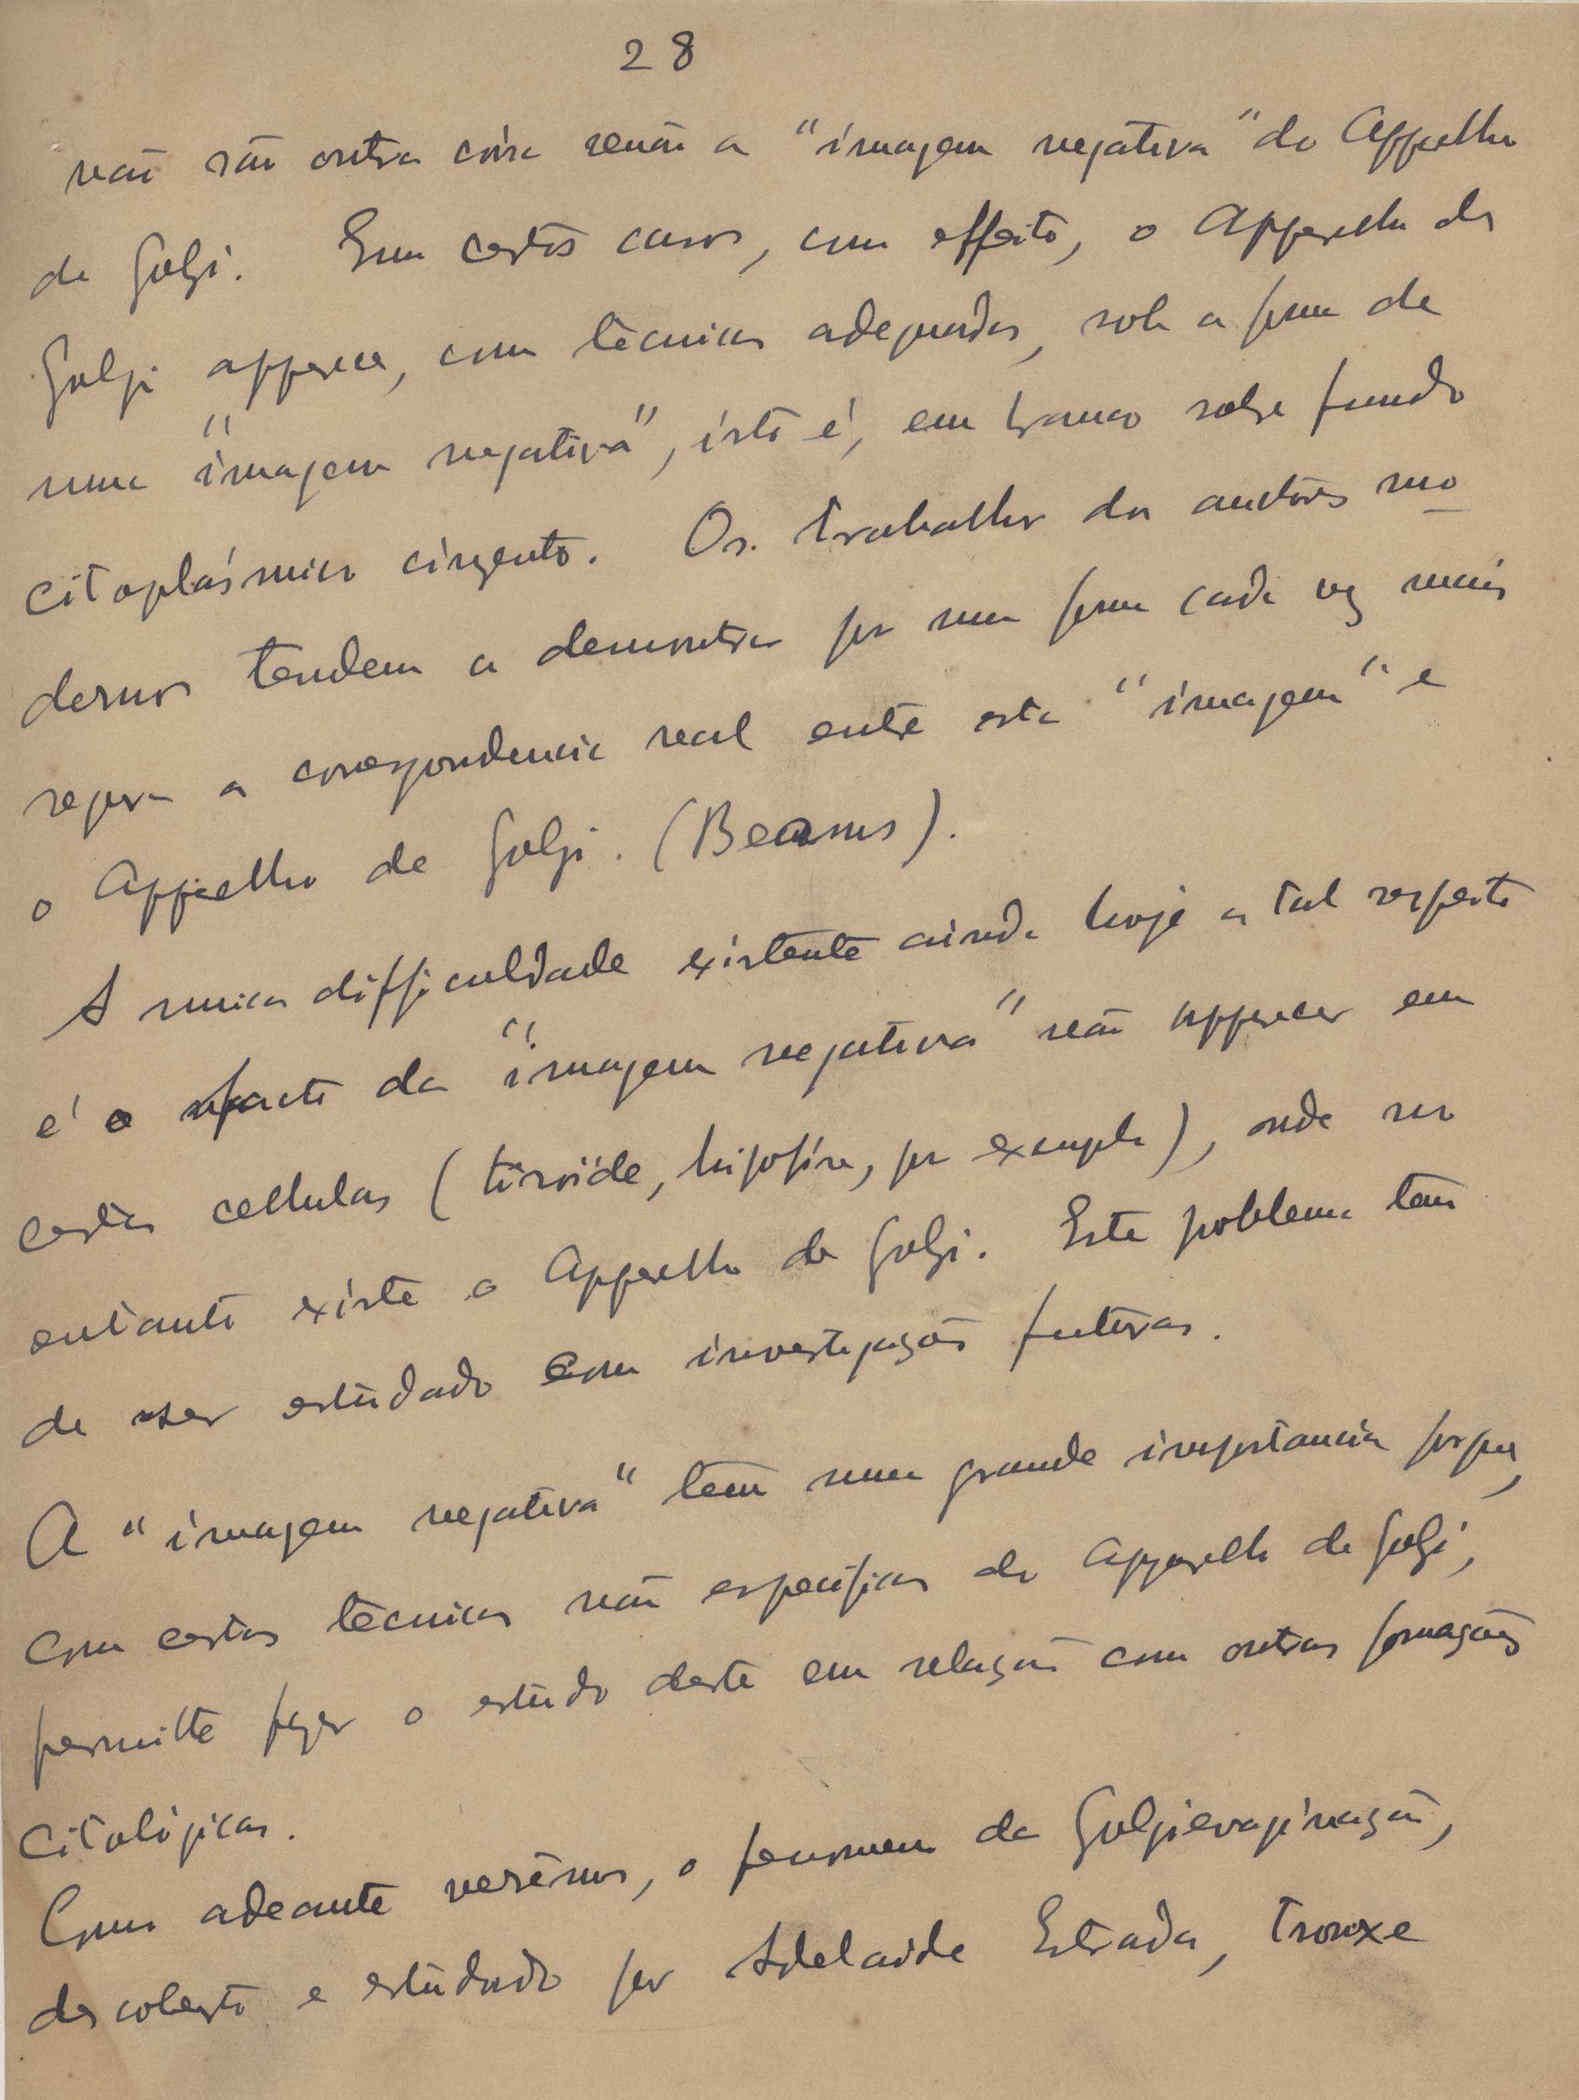 28
não são outra coisa senão a "imagem negativa" do Apparelho
de Golgi. Em certos casos, com effeito, o Apparelho de
Golgi apparece, com técnicas adequadas, sob a forma de
uma "imagem negativa", isto é, em branco sobre fundo
citoplásmico cinzento. Os trabalhos dos autores mo
dernos tendem a demonstrar por uma forma cada vez mais
segura a correspondencia real entre esta "imagem" e
o Apparelho de Golgi. (Beams).
A unica difficuldade existente ainda hoje a tal respeito
é o facto da "imagem negativa" não apparecer em
certas cellulas (tiroíde, hipofise, por exemplo), onde no
entanto existe o Apparelho de Golgi. Este problema tem
de ser estudado com investigações futuras.
A "imagem negativa" tem uma grande importancia porque,
com certas técnicas não especificas do Apparelho de Golgi,
permitte fazer o estudo deste em relação com outras formações
citológicas.
Como adeante verêmos, o fenomeno da Golgievaginação,
descoberto e estudado por Adelaide Estrada, trouxe